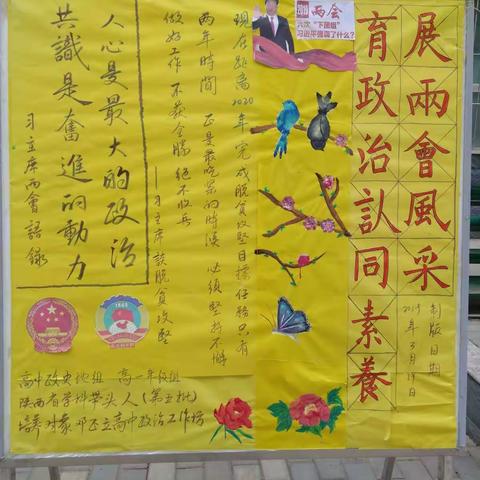 展兩會風采
育政治認同素養
制版日期
2019年3月19日
两会
六次“下团组”
习近平强调了什么？
现在距离2020年完成脱貧攻堅目標任務只有
两年時間 正是最吃紧的時候 必须堅持不懈
做好工作 不获全勝 绝不收兵
——习主席談脱貧攻堅
人心是最大的政治
共識是奮進的動力
习主席两會語錄
高中政史地组 高一年级组
陕西省学科带头人（第五批）
培养对象
高中政治工作坊